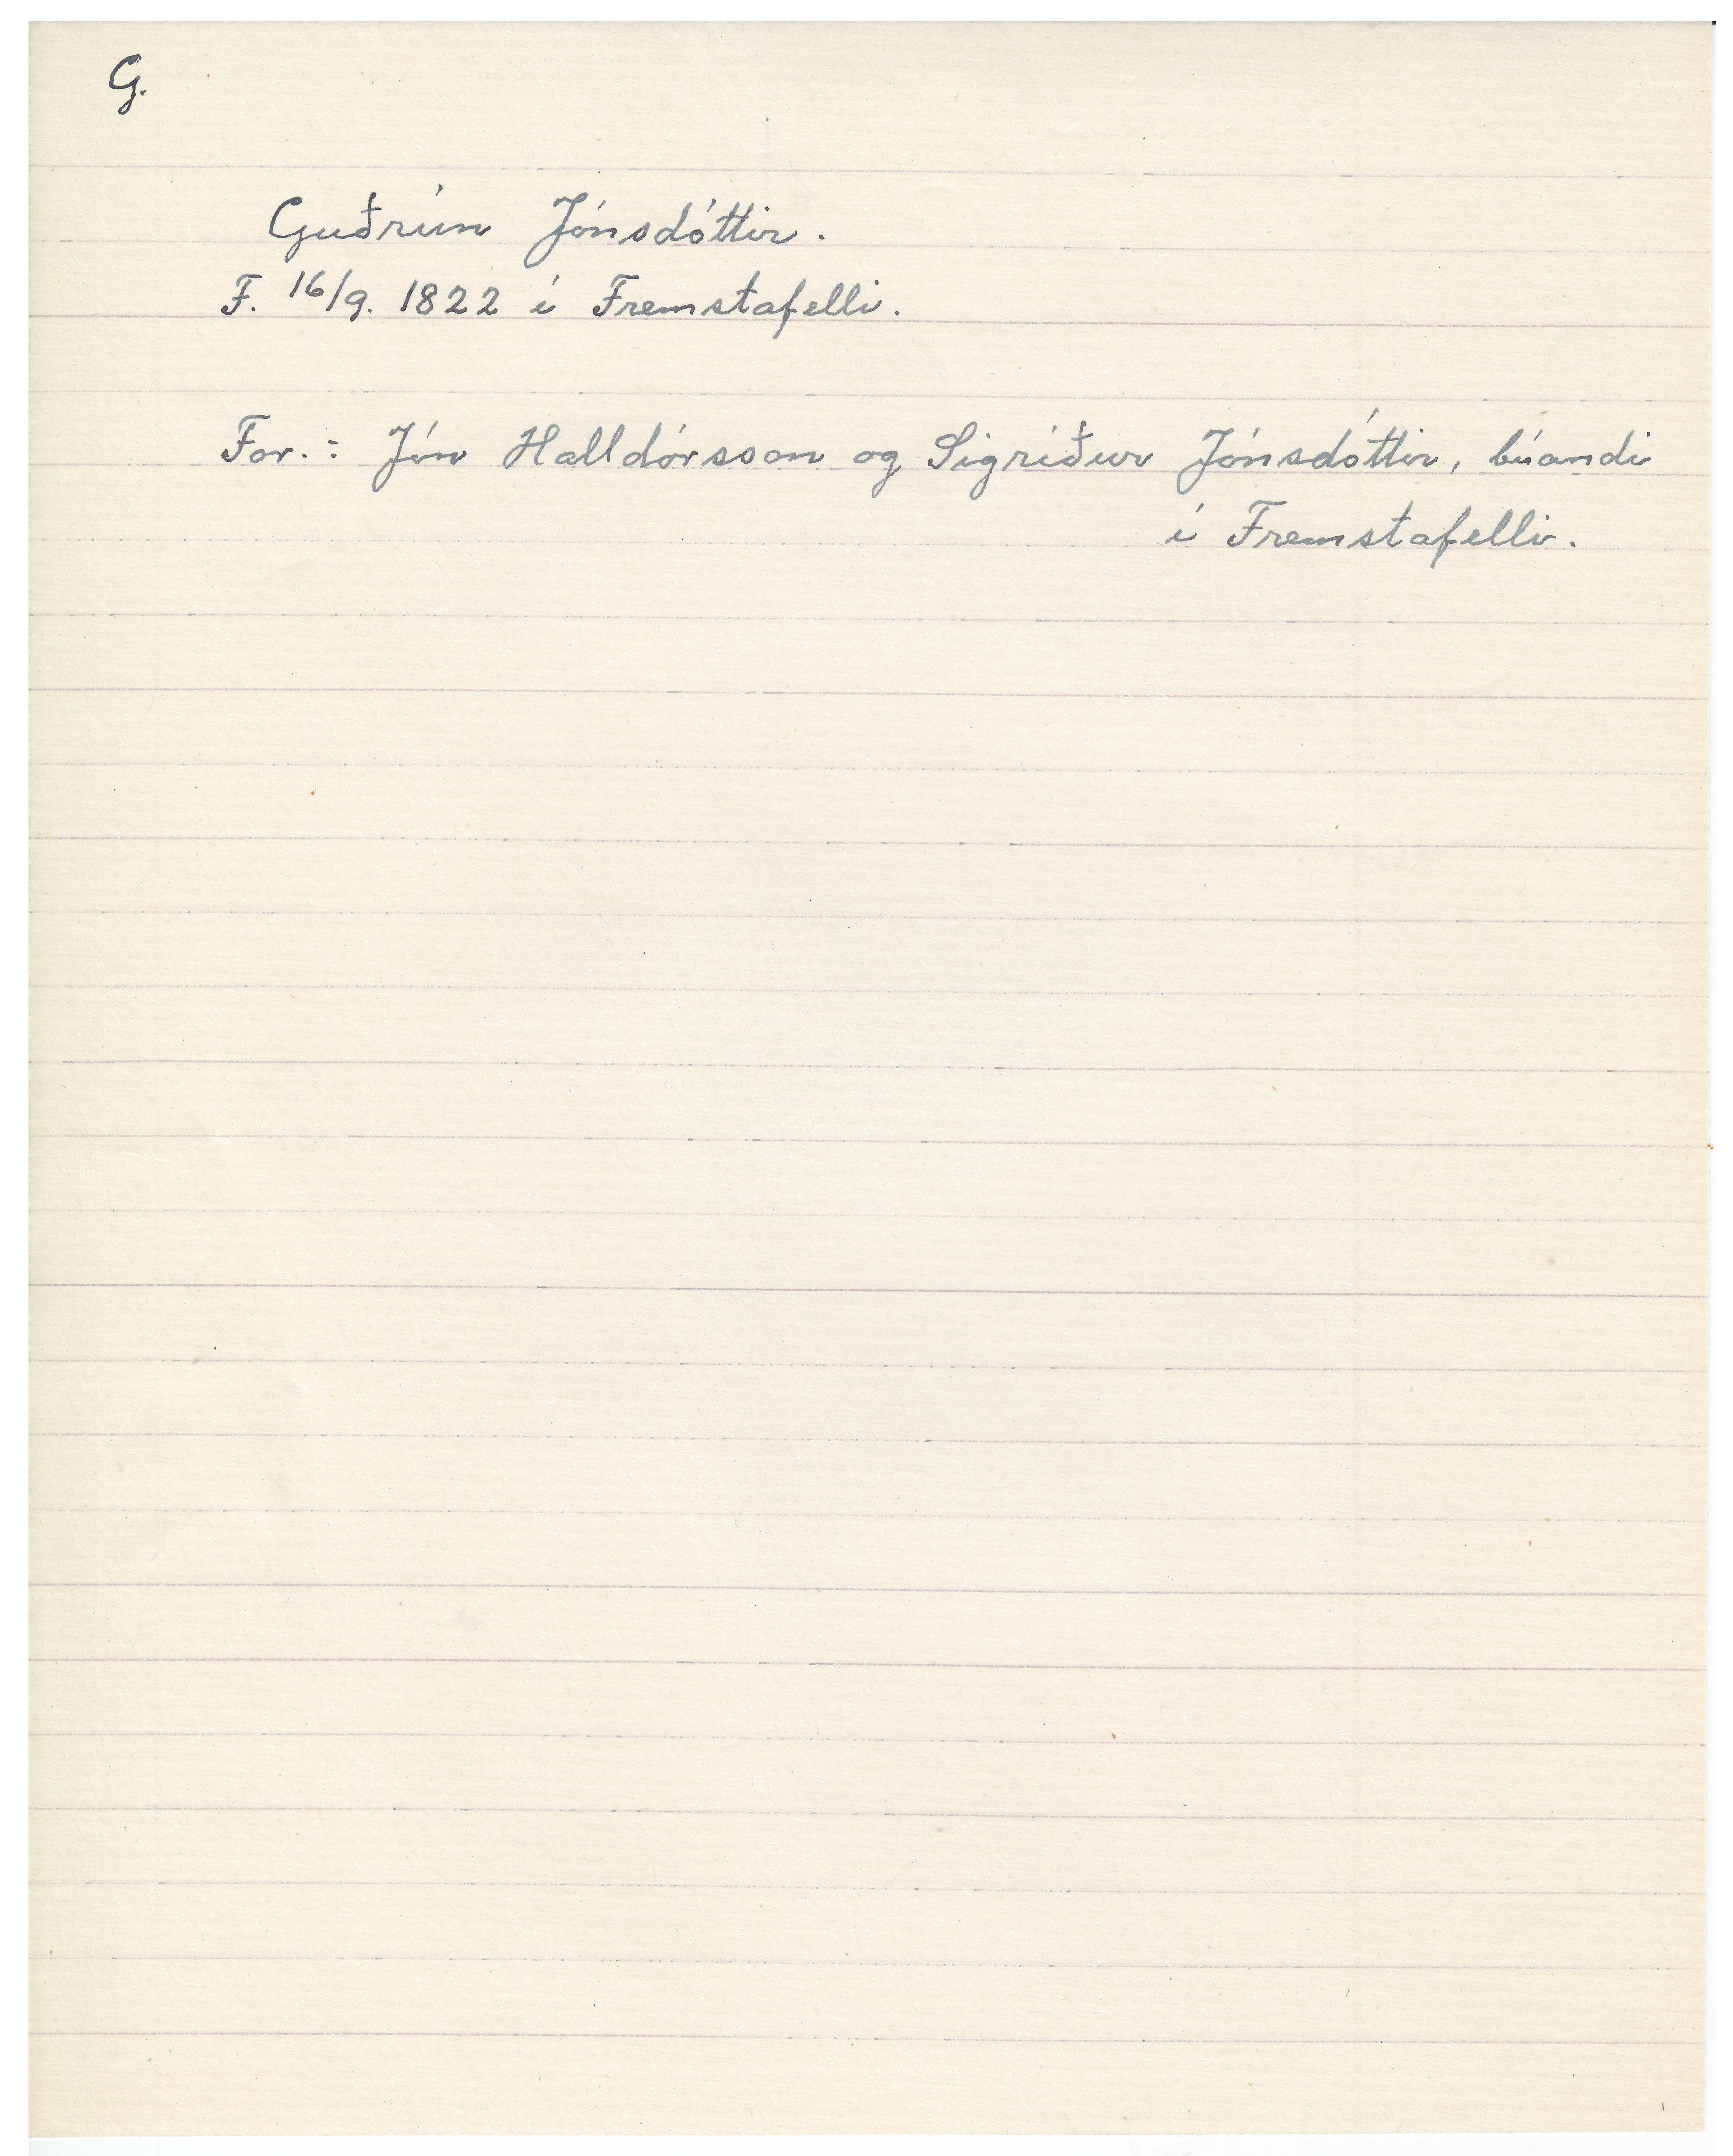 G.
Guðrún Jónsdóttir.
F. 16/9. 1822 í Fremstafelli.
For.: Jón Halldórsson og Sigríður Jónsdóttir, búandi
í Fremstafelli.